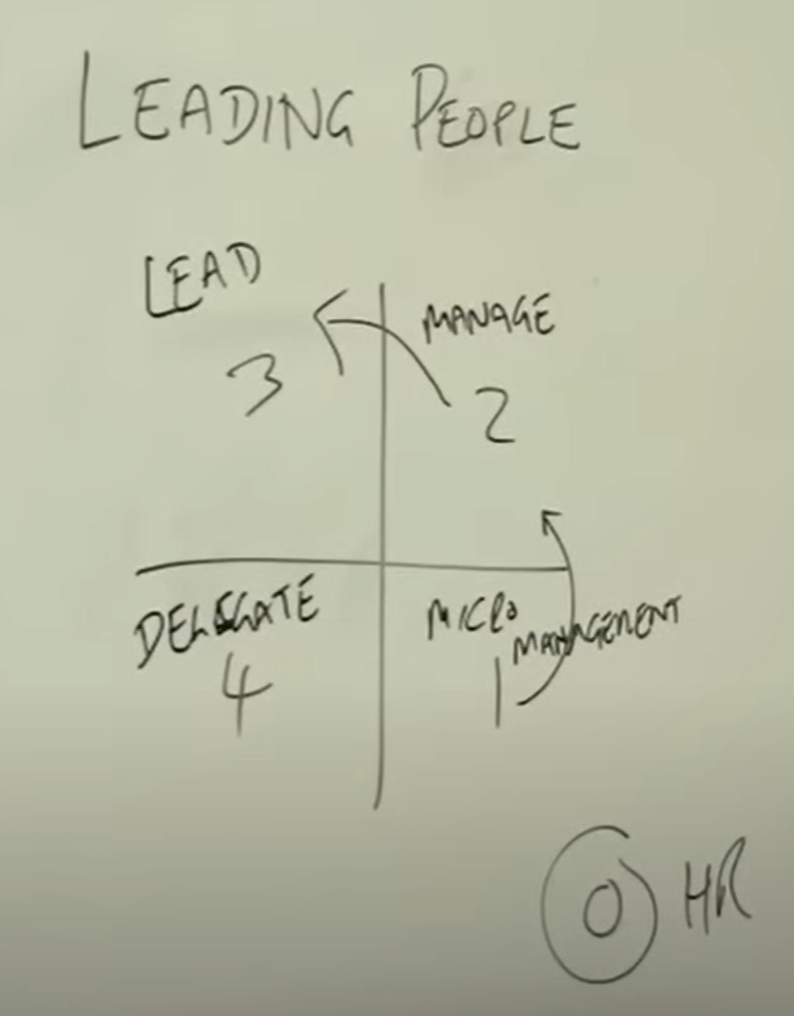 LEADING PEOPLE
LEAD
MANAGE
3
2
DELEGATE
MICRO
MANAGEMENT
4
1
0 HR